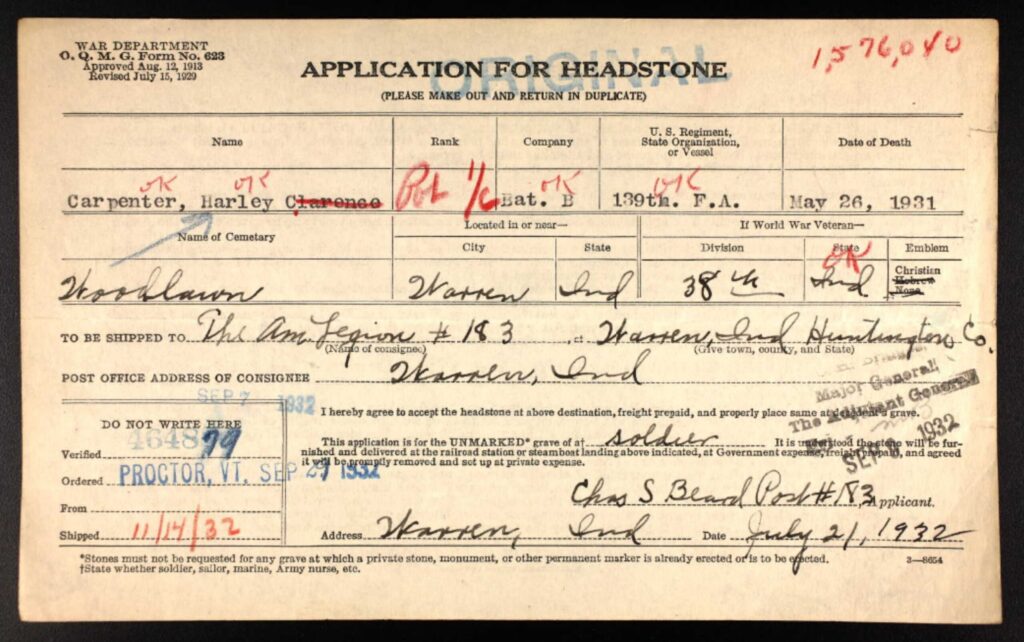 WAR DEPARTMENT
O. Q. M. G. Form No. 623
Approved Aug. 12, 1913
Revised July 15, 1929
ORIGINAL
1,576,040
APPLICATION FOR HEADSTONE
(PLEASE MAKE OUT AND RETURN IN DUPLICATE)
Name Rank Company U. S. Regiment, State Organization, or Vessel Date of Death
OK OK OK OK
Carpenter, Harley Clarence Pvt 1/c Bat. B 139th. F.A. May 26, 1931
Name of Cemetery Located in or near— If World War Veteran—
City State Division State Emblem
OK
Woodlawn Warren Ind 38th Ind Christian Hebrew None
TO BE SHIPPED TO The Am. Legion # 183, at Warren, Ind Huntington Co.
(Name of consignee) (Give town, county, and State)
POST OFFICE ADDRESS OF CONSIGNEE Warren, Ind
Major General,
The Adjutant General
SEP 8 1932
SEP 7 1932
I hereby agree to accept the headstone at above destination, freight prepaid, and properly place same at decedent's grave.
DO NOT WRITE HERE
Verified
Ordered PROCTOR, VT. SEP 29 1932
From
Shipped 11/14/32
This application is for the UNMARKED* grave of a† soldier It is understood the stone will be fur-
nished and delivered at the railroad station or steamboat landing above indicated, at Government expense, freight prepaid, and agreed
it will be promptly removed and set up at private expense.
Chas S Beard Post #183 Applicant.
Address Warren, Ind Date July 21, 1932
*Stones must not be requested for any grave at which a private stone, monument, or other permanent marker is already erected or is to be erected.
†State whether soldier, sailor, marine, Army nurse, etc.
3—8654